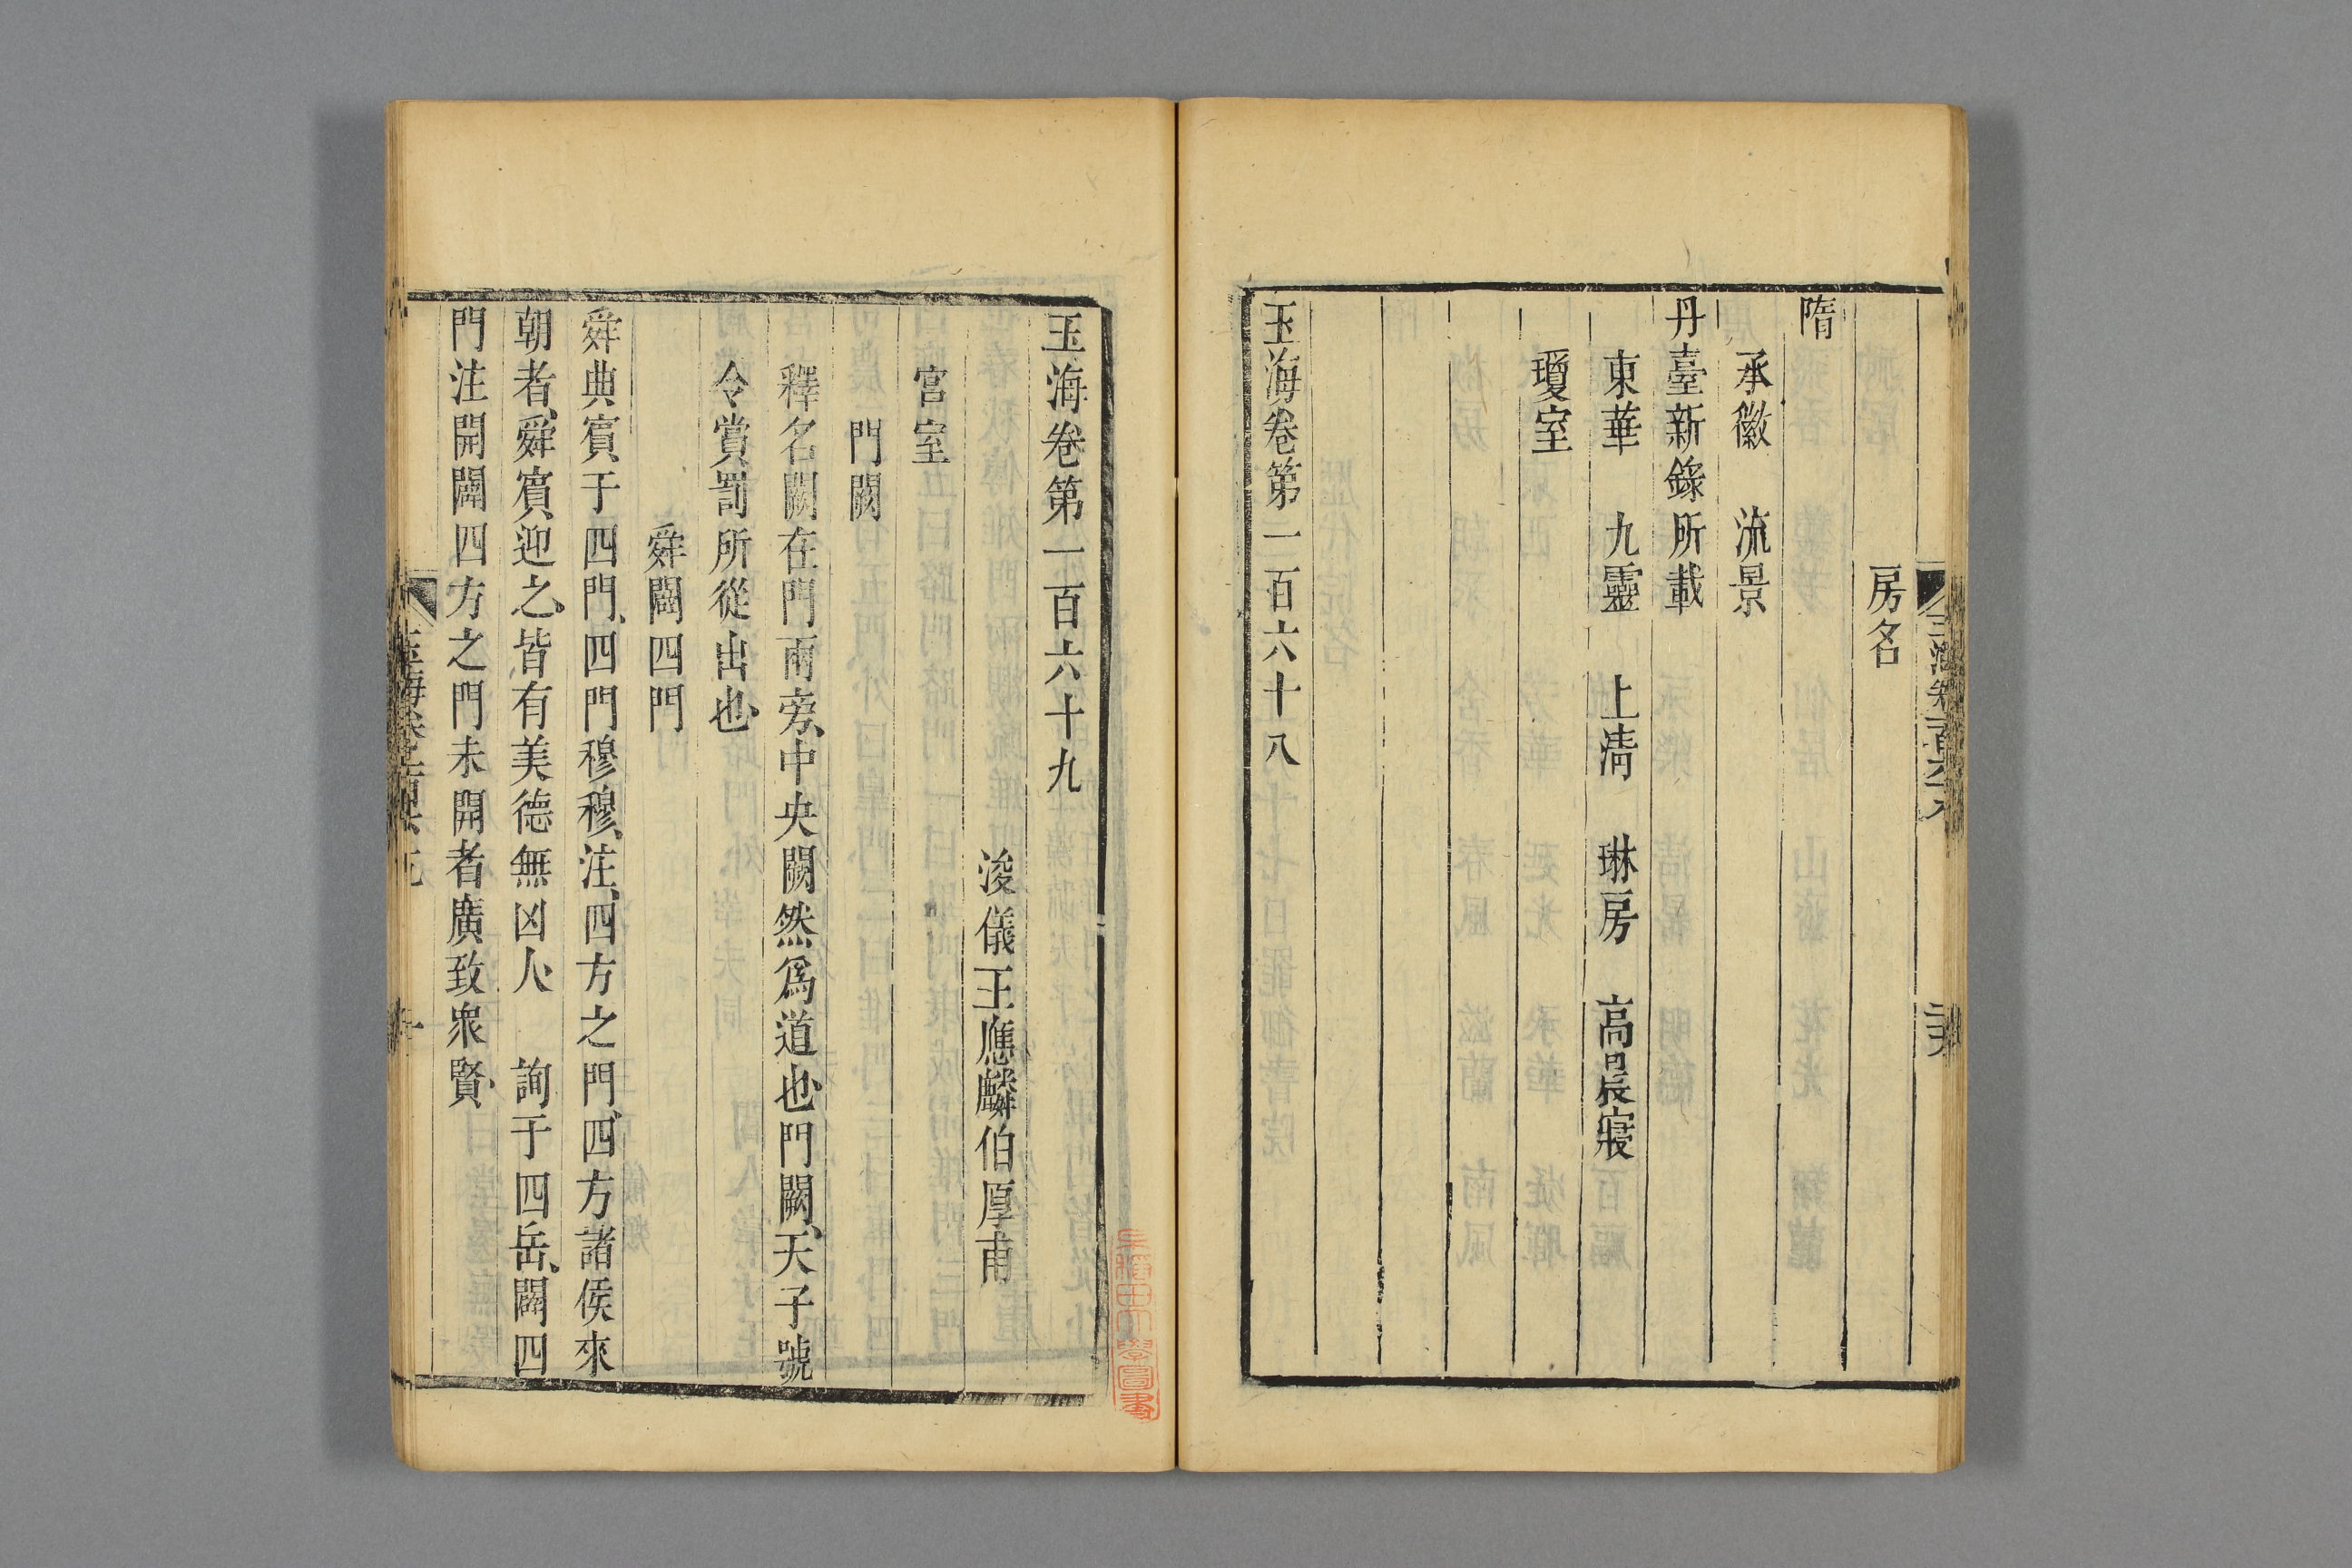 房名
隋
承徽　流景
丹臺新錄所載
東華　九靈　上清　琳房　高晨寢
瓊室
玉海卷第一百六十八
玉海卷第一百六十九
浚儀王應麟伯厚甫
宮室
門闕
釋名闕在門兩旁、中央闕然爲道也、門闕、天子號
令賞罰所從出也、
舜闢四門
舜典賓、于四門、四門穆穆、注、四方之門、四方諸侯來
朝者、舜賓、迎之、皆有美德無凶人、　詢于四岳、闢四
門注開闢四方之門未開者廣致衆賢、
早稻田大學圖書